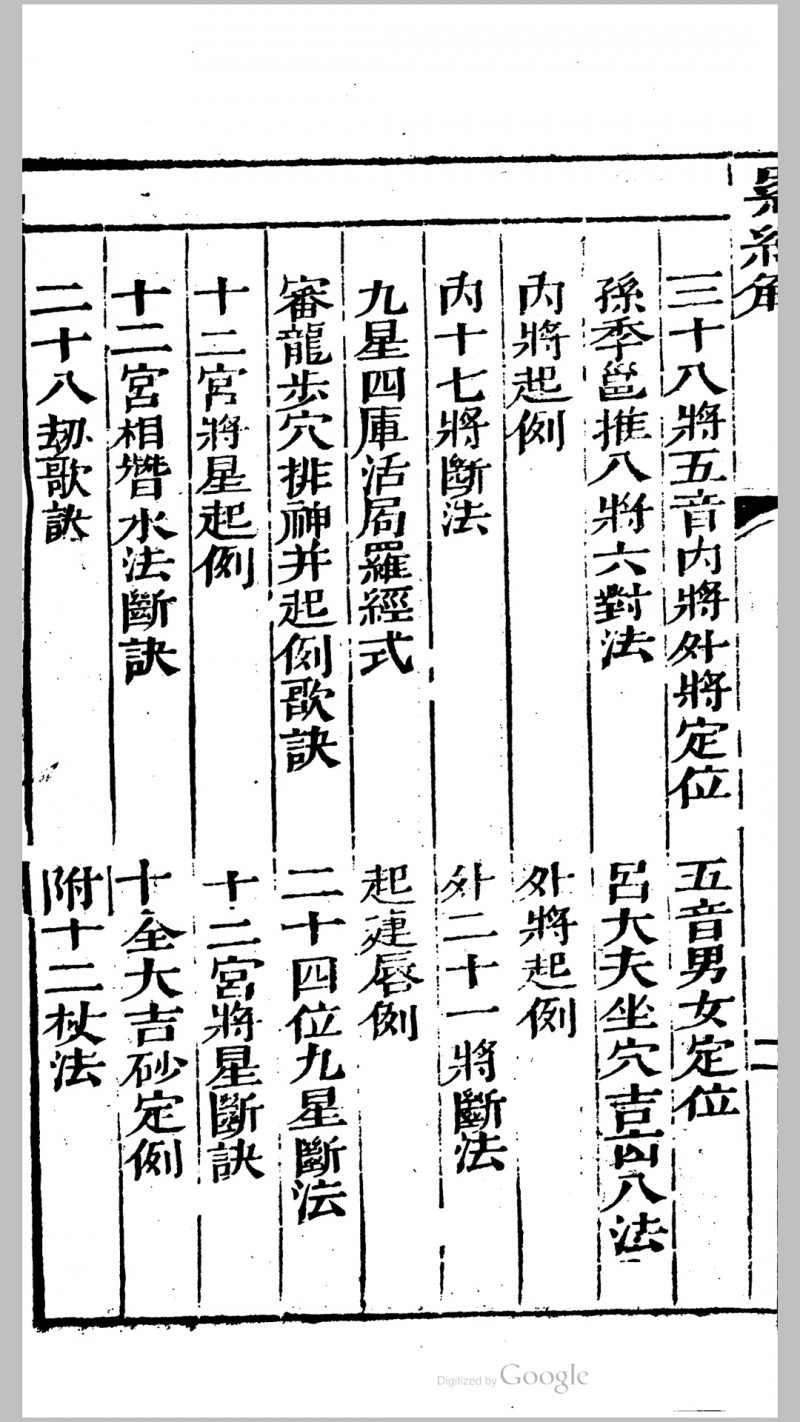 三十八將五音內將外將定位　五音男女定位
孫季邕推八將六對法　呂大夫坐穴吉凶八法
內將起例　外將起例
內十七將斷法　外二十一將斷法
九星四庫活局羅經式　起建辰例
審龍步穴排神并起例歌訣　二十四位九星斷法
十二宮將星起例　十二宮將星斷訣
十二宮相㬱水法斷訣　十全大吉砂定例
二十八劫歌訣　附十二杖法
二
Digitized by Google